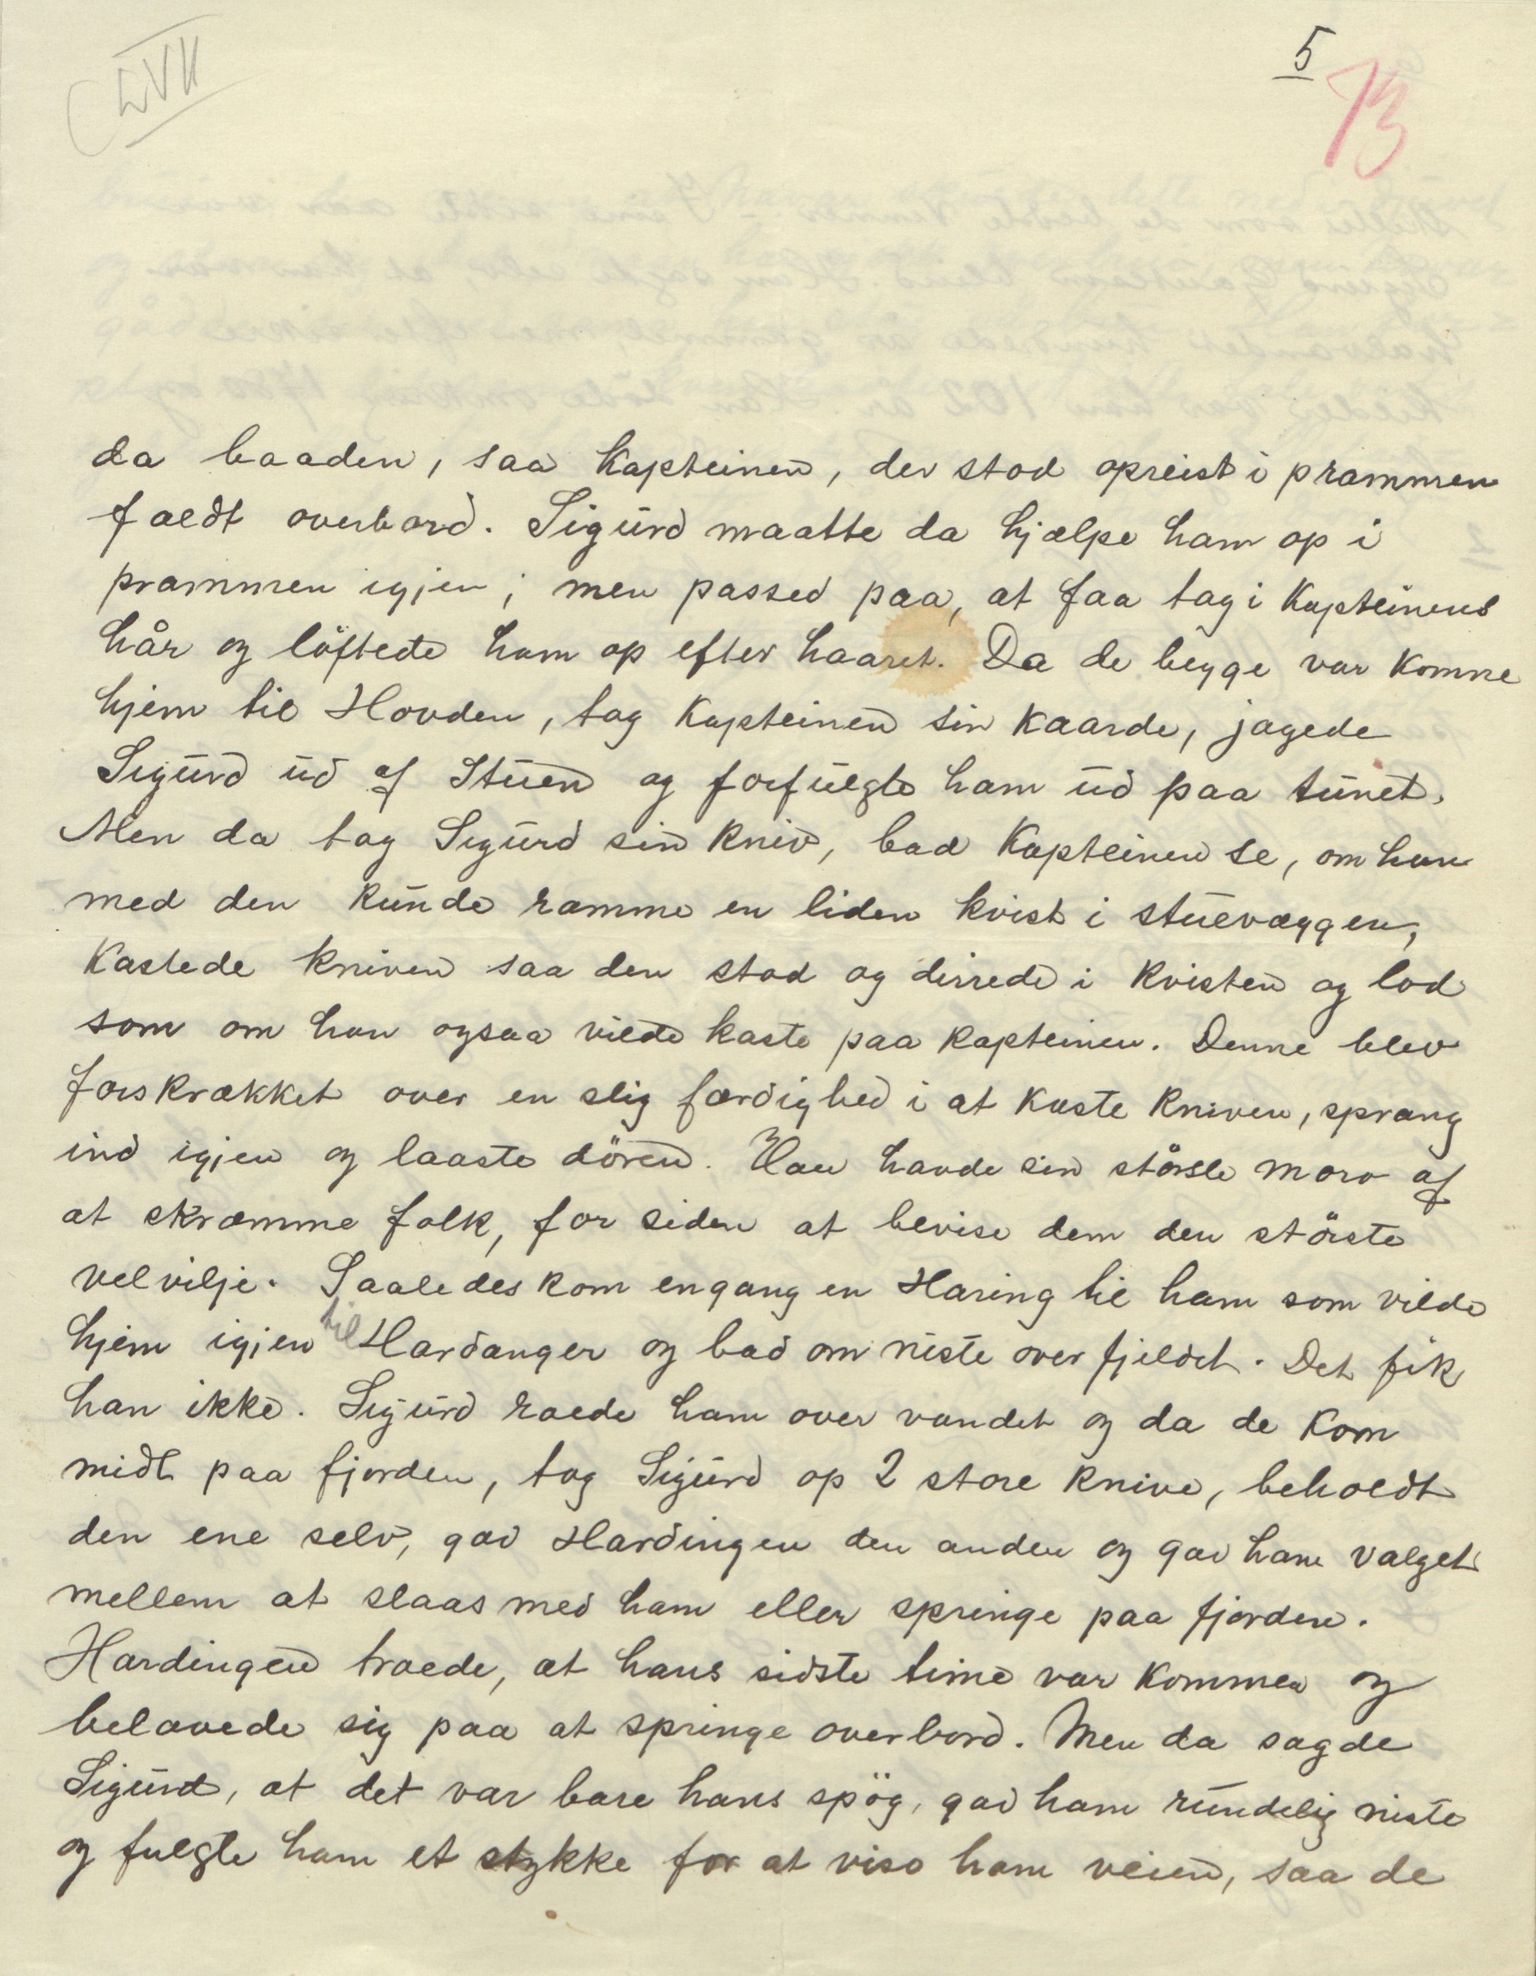 LVII
5
73
da baaden, saa Kapteinen, der stod opreist i prammen
faldt overbord. Sigurd maatte da hjælpe ham op i
prammen igjen; men passed paa, at faa tag i Kapteinens
hår og löftede ham op efter haaret. Da de begge var komne
hjem til Hovden, tog Kapteinen sin kaarde, jagede
Sigurd ud af Stuen og forfulgte ham ud paa tunet.
Men da tog Sigurd sin kniv, bad Kapteinen se, om han
med den kunde ramme en liden kvist i stuevæggen,
kastede kniven saa den stod og dirrede i kvisten og lod
som om han ogsaa vilde kaste paa kapteinen. Denne blev
forskrækket over en slig færdighed i at kaste kniven, sprang
ind igjen og laaste dören. Han havde sin störste moro af
at skræmme folk, for siden at bevise dem den störste
velvilje. Saaledes kom engang en Haring til ham som vilde
hjem igjen til Hardanger og bad om niste over fjeldet. Det fik
han ikke. Sigurd roede ham over vandet og da de kom
midt paa fjorden, tog Sigurd op 2 store knive, beholdt
den ene selv, gav Hardingen den anden og gav ham valget
mellem at slaas med ham eller springe paa fjorden.
Hardingen troede, at hans sidste time var kommen og
belavede sig paa at springe overbord. Men da sagde
Sigurd, at det var bare hans spög, gav ham rundelig niste
og fulgte ham et stykke for at vise ham veien, saa de